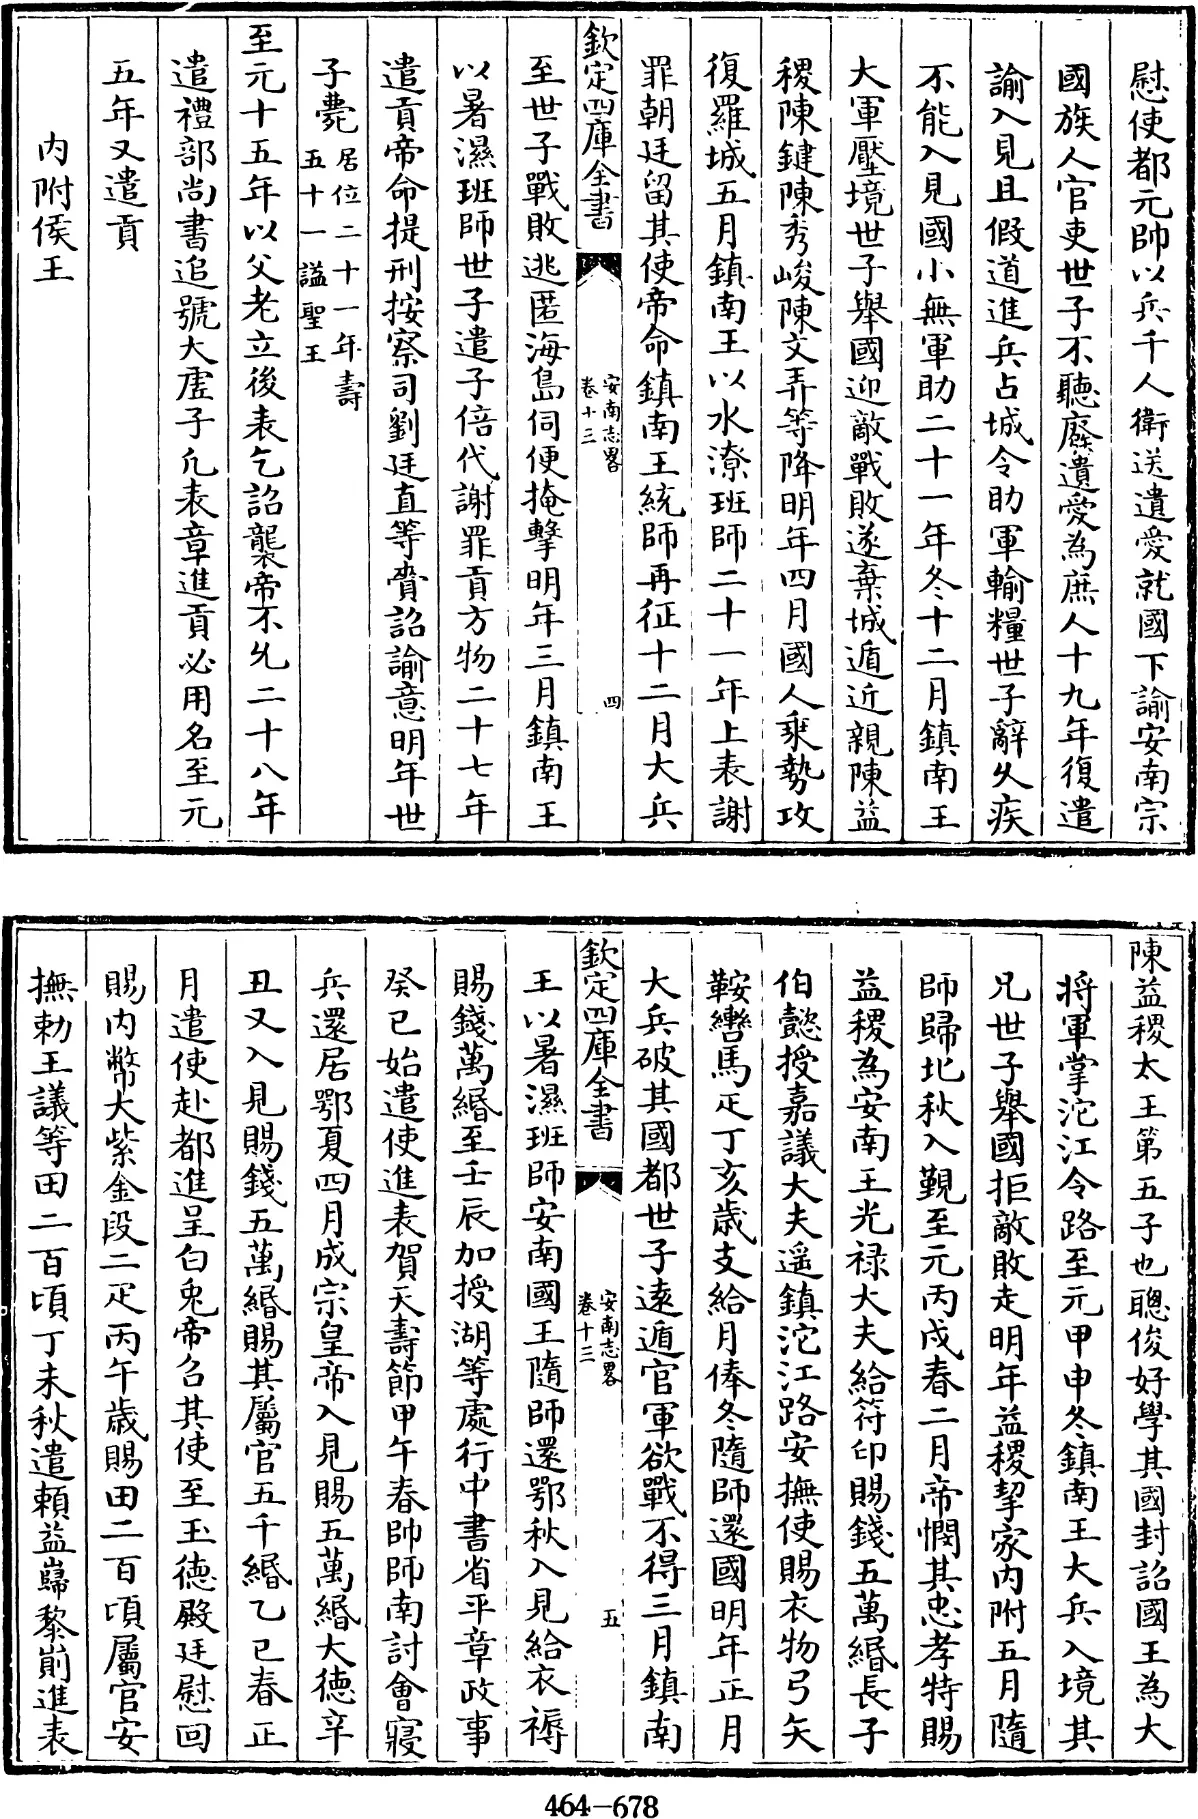 慰使都元帥以兵千人衛送遺愛就國下諭安南宗
國族人官吏世子不聽廢遺愛為庶人十九年復遣
諭入見且假道進兵占城令助軍輸糧世子辭以疾
不能入見國小無軍助二十一年冬十二月鎮南王
大軍壓境世子舉國迎敵戰敗遂棄城遁近親陳益
稷陳鍵陳秀峻陳文弄等降明年四月國人乘勢攻
復羅城五月鎮南王以水潦班師二十一年上表謝
罪朝廷留其使帝命鎮南王統師再征十二月大兵
欽定四庫全書
安南志畧
卷十三
四
至世子戰敗逃匿海島伺便掩擊明年三月鎮南王
以暑濕班師世子遣子倍代謝罪貢方物二十七年
遣貢帝命提刑按察司劉廷直等賫詔諭意明年世
子薨居位二十一年壽
五十一謚聖王
至元十五年以父老立後表乞詔襲帝不允二十八年
遣禮部尚書追號大虛子凢表章進貢必用名至元
五年又遣貢
内附侯王
陳益稷太王第五子也聰俊好學其國封詔國王為大
將軍掌沱江令路至元甲申冬鎮南王大兵入境其
兄世子舉國拒敵敗走明年益稷挈家内附五月隨
師歸北秋入覲至元丙戌春二月帝憫其忠孝特賜
益稷為安南王光禄大夫給符印賜錢五萬緡長子
伯懿授嘉議大夫遥鎮沱江路安撫使賜衣物弓矢
鞍轡馬疋丁亥歳支給月俸冬隨師還國明年正月
大兵破其國都世子遠遁官軍欲戰不得三月鎮南
欽定四庫全書
安南志畧
卷十三
五
王以暑濕班師安南國王隨師還鄂秋入見給衣褥
賜錢萬緡至壬辰加授湖等處行中書省平章政事
癸已始遣使進表賀天壽節甲午春帥師南討會寢
兵還居鄂夏四月成宗皇帝入見賜五萬緡大德辛
丑又入見賜錢五萬緡賜其屬官五千緡乙已春正
月遣使赴都進呈白兎帝召其使至玉德殿廷慰回
賜内幣大紫金段二疋丙午歳賜田二百頃屬官安
撫勅王議等田二百頃丁未秋遣賴益歸黎崱進表
464-678